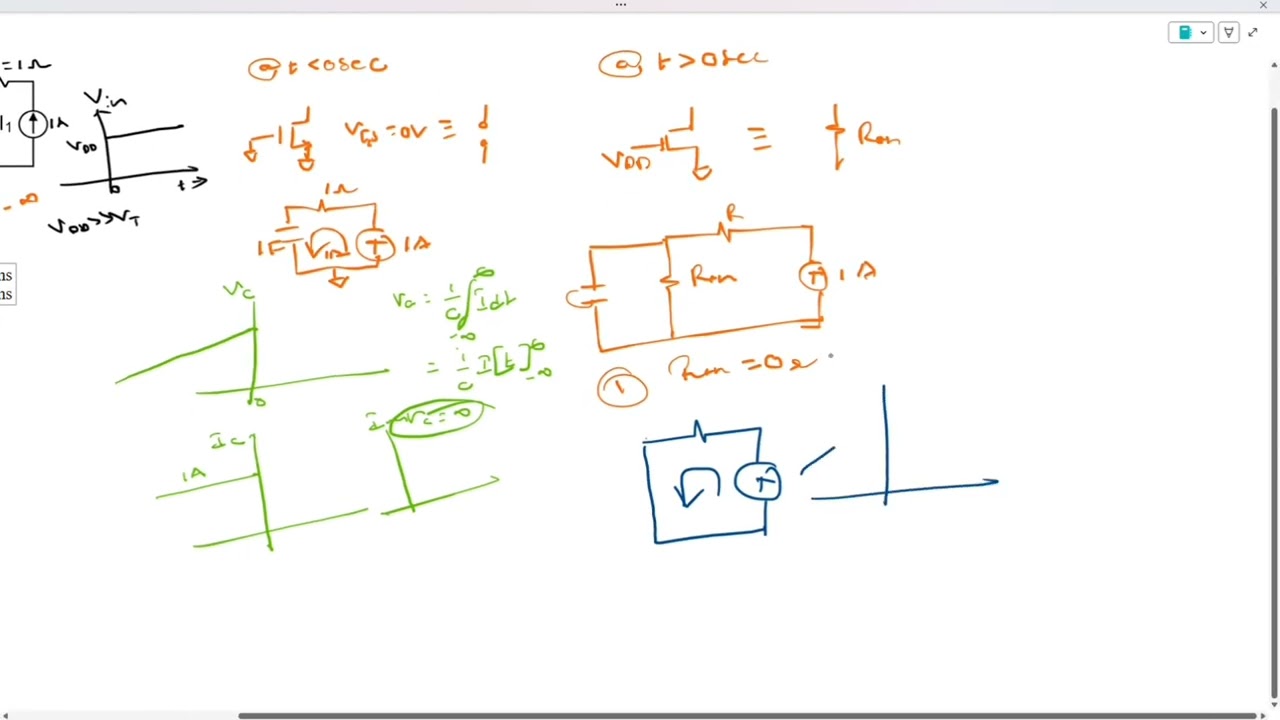 =1Ω
I1
1A
Vin
VDD
t
0
-∞
VDD>>VT
ns
ns
@ t<0sec
VG=0V ≡
1Ω
1F
1A
1A
Vc
0
Vc = 1/C ∫ I dt
= 1/C I[t]
Ic
1A
I
Vc = ∞
@ t>0sec
VDD
≡
Ron
R
C
Ron
1A
①
Ron = 0Ω